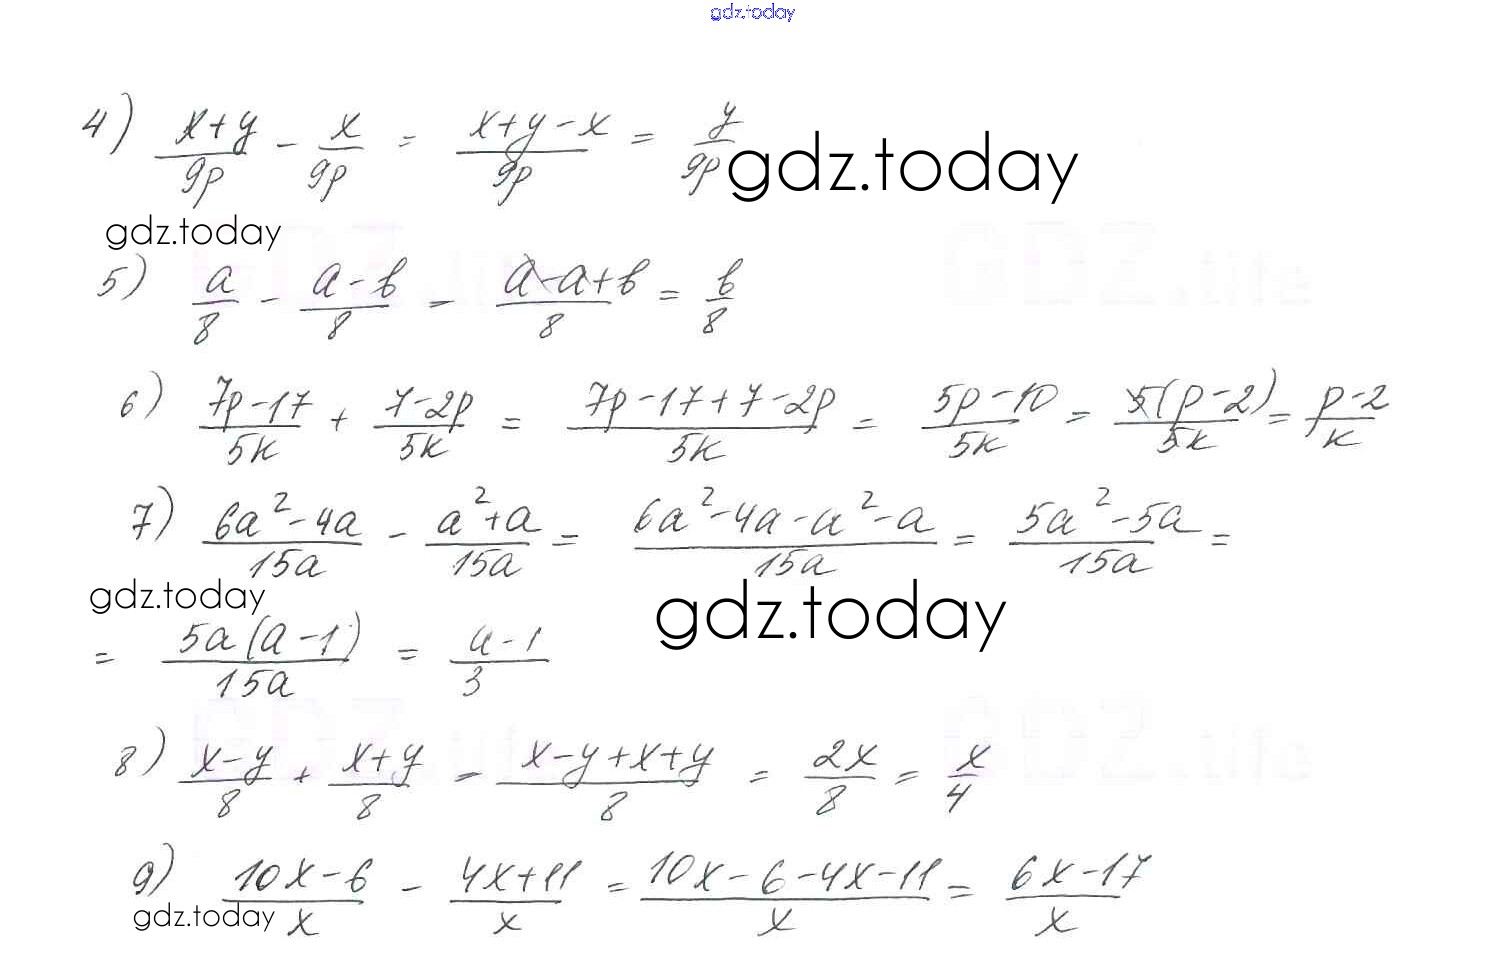 gdz.today
4) (x+y)/9p - x/9p = (x+y-x)/9p = y/9p
gdz.today
gdz.today
5) a/8 - (a-b)/8 = (a-a+b)/8 = b/8
6) (7p-17)/5k + (7-2p)/5k = (7p-17+7-2p)/5k = (5p-10)/5k = 5(p-2)/5k = (p-2)/k
7) (6a²-4a)/15a - (a²+a)/15a = (6a²-4a-a²-a)/15a = (5a²-5a)/15a =
gdz.today
gdz.today
= 5a(a-1)/15a = (a-1)/3
8) (x-y)/8 + (x+y)/8 = (x-y+x+y)/8 = 2x/8 = x/4
9) (10x-6)/x - (4x+11)/x = (10x-6-4x-11)/x = (6x-17)/x
gdz.today